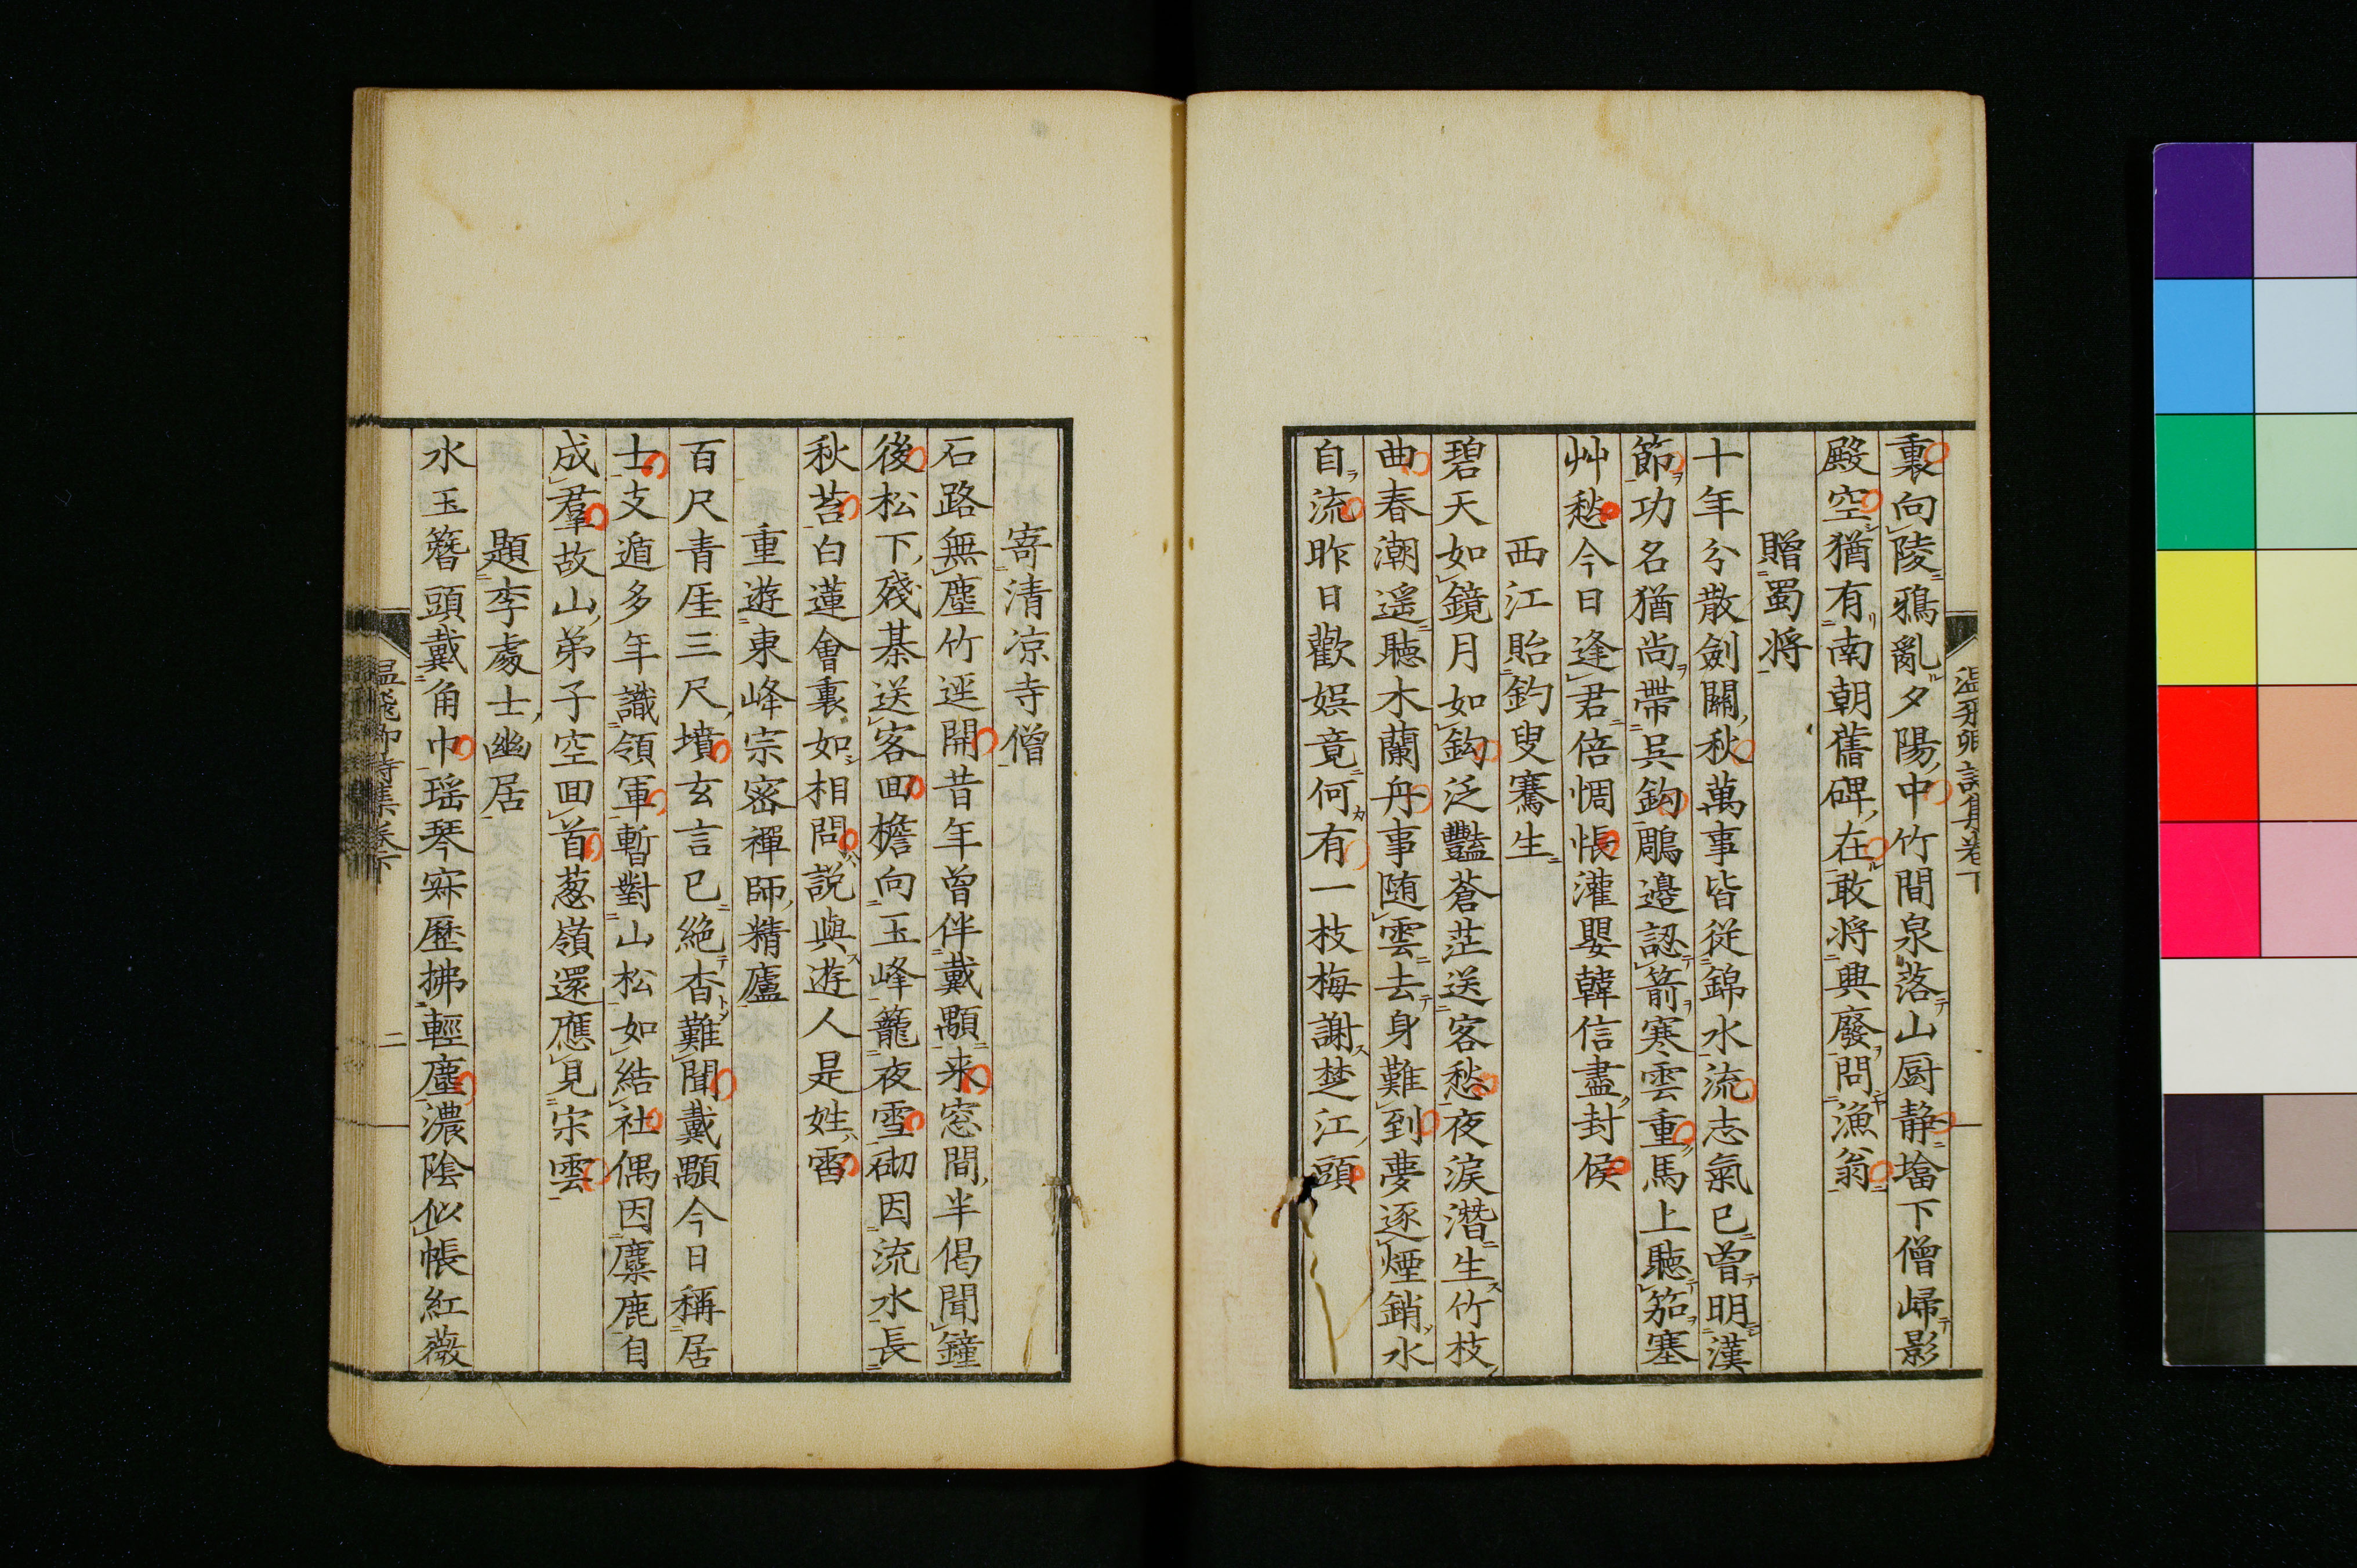 裏向陵鴉亂夕陽中竹間泉落山厨静墖下僧歸影
殿空猶有南朝舊碑在敢將興廢問漁翁
贈蜀將
十年分散劍關秋萬事皆從錦水流志氣已曾明漢
節功名猶尚帶吳鈎鵰邊認箭寒雲重馬上聽笳塞
艸愁今日逢君倍惆悵灌嬰韓信盡封侯
西江貽釣叟騫生
碧天如鏡月如鈎泛灎蒼茫送客愁夜淚潛生竹枝
曲春潮遥聽木蘭舟事随雲去身難到夢逐煙銷水
自流昨日歡娯竟何有一枝梅謝楚江頭
寄清凉寺僧
石路無塵竹逕開昔年曾伴戴顒来窓間半偈聞鐘
後松下殘棊送客回檐向玉峰籠夜雪砌因流水長
秋苔白蓮會裏如相問説與遊人是姓雷
重遊東峰宗密禪師精廬
百尺青厓三尺墳玄言已絶杳難聞戴顒今日稱居
士支遁多年識領軍暫對山松如結社偶因麋鹿自
成羣故山弟子空回首葱嶺還應見宋雲
題李處士幽居
水玉簪頭戴角巾瑶琴寂歷拂輕塵濃陰似帳紅薇
温飛卿詩集卷下
二